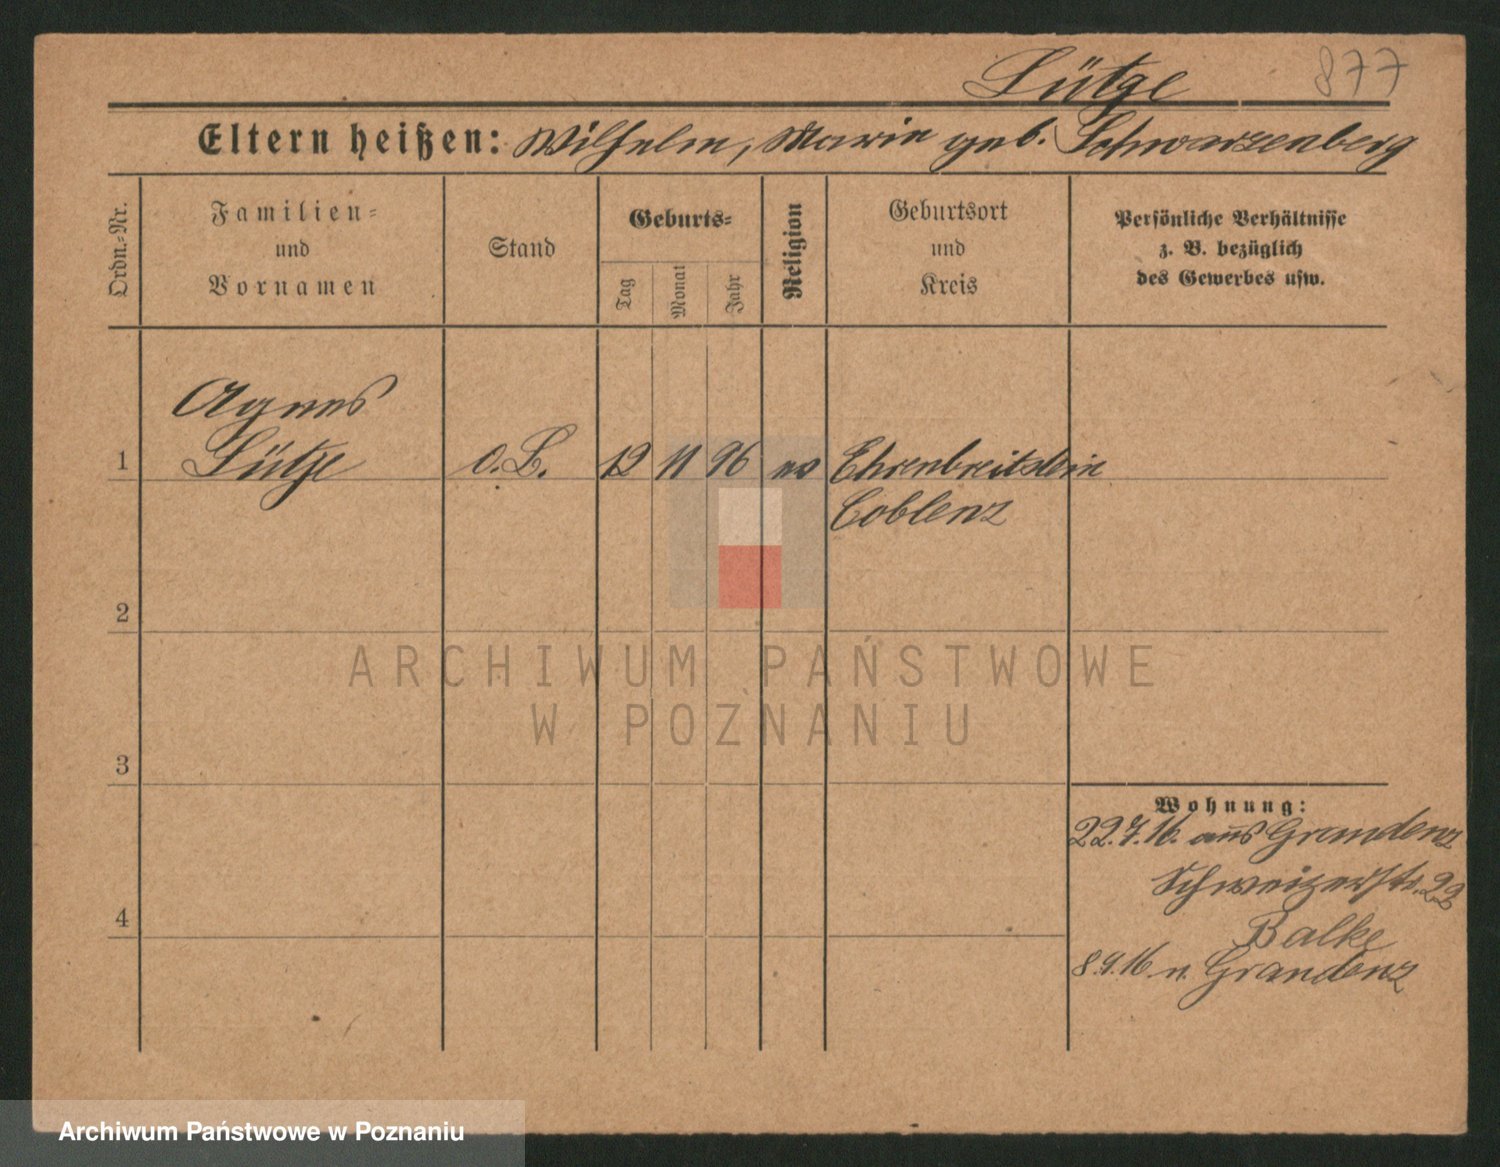 Lütge 877
Eltern heißen: Wilhelm, Marie geb. Schwarzenberg
Ordn.-Nr.
Familien-
und
Vornamen
Stand
Geburts-
Tag
Monat
Jahr
Religion
Geburtsort
und
Kreis
Persönliche Verhältnisse
z. B. bezüglich
des Gewerbes usw.
Agnes
1 Lütge o.B. 12 11 96 ev Ehrenbreitstein
Coblenz
2
ARCHIWUM PAŃSTWOWE
W POZNANIU
3
Wohnung:
22.7.16. aus Graudenz
Schweizerstr. 22
4
Balke
8.9.16 n. Graudenz
Archiwum Państwowe w Poznaniu